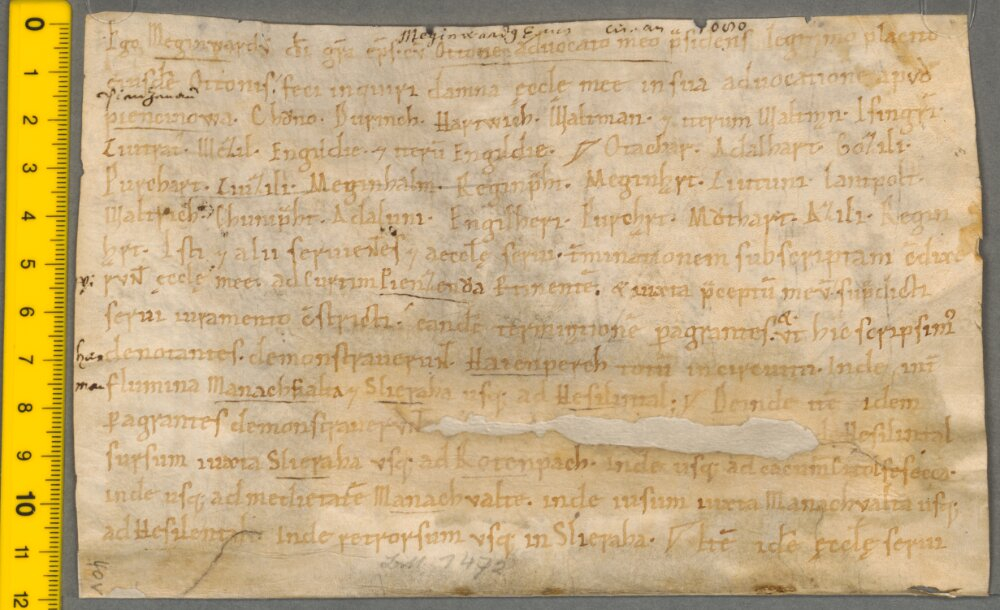 Meginwardus Episc circa an 1080
Ego Meginwardus dei gra eps cu Ottone advocato meo psidens legitimo placito
eiusde Ottonis. feci inquiri damna eccle mee in sua advocatione apud
piencinowa. Chono. Durinch. Hartwich. Waltman. 7 iterum Waltmn. Isingri.
Liutrat. Wezil. Engildie. 7 iteru Engildie. Otachar. Adalhart. Gozili.
Purchart. Liuzili. Meginhalm. Reginpht. Meginhrt. Liutuni. Lantpolt.
Waltrich. Chunipht. Adaluni. Engilheri. Purchrt. Mothart. Azili. Regin
hrt. Isti 7 alii servientes 7 aeccle servi. tminationem subscriptam edixe
runt eccle mee. ad curtim Pienzenova ptinente. & iuxta pceptu meu supdicti
servi iuramento cstricti. eande terminatione pagrantes. ut hic scripsim
denotantes. demonstraverunt. Hatenperch totu in circuitu. Inde int
flumina Manachfialta 7 Slieraha usq ad Hesilintal. Deinde ite idem
pagrantes demonstraverunt Hesilintal
sursum iuxta Slieraha usq ad Katenpach. inde usq ad cacum Citolfesecca.
inde usq ad medietate Manachvalte. inde iusum iuxta Manachvalta usq
ad Hesilental. Inde retrorsum usq in Slieraha. Ite ide eccle servi
40v